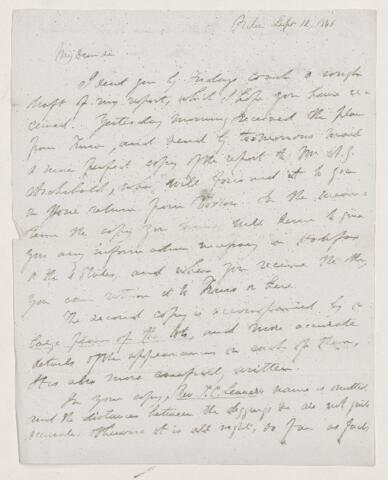 Pictou Sept 12, 1868
My Dear Sir
I sent you by Fridays coach a rough
draft of my report, which I hope you have re-
ceived. Yesterday morning received the plan
from Truro, and send by tomorrows mail
a more perfect copy of the report to Mr A.G.
Archibald, who will forward it to you
on your return from Boston. In the mean
time the copy you have will serve to give
you any information necessary on Halifax
or the States, and when you receive the other
you can return it to Truro or here.
The second copy is accompanied by a
large plan of the lots, and more accurate
details of the appearances on each of them,
It is also more carefully written.
In your copy, Rev. T.C. Leaver's name is omitted
and the distances between the diggings &c are not quite
accurate. Otherwise it is all right, so far as facts